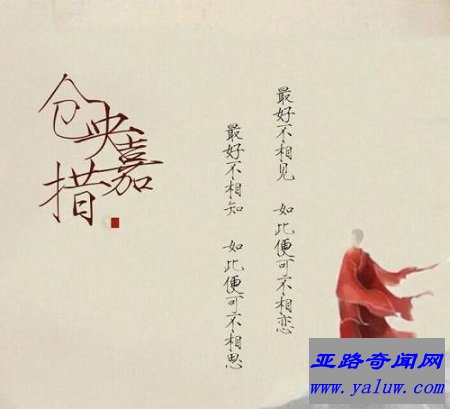 仓央嘉措
最好不相见 如此便可不相恋
最好不相知 如此便可不相思
亚路奇闻网
www.yaluw.com